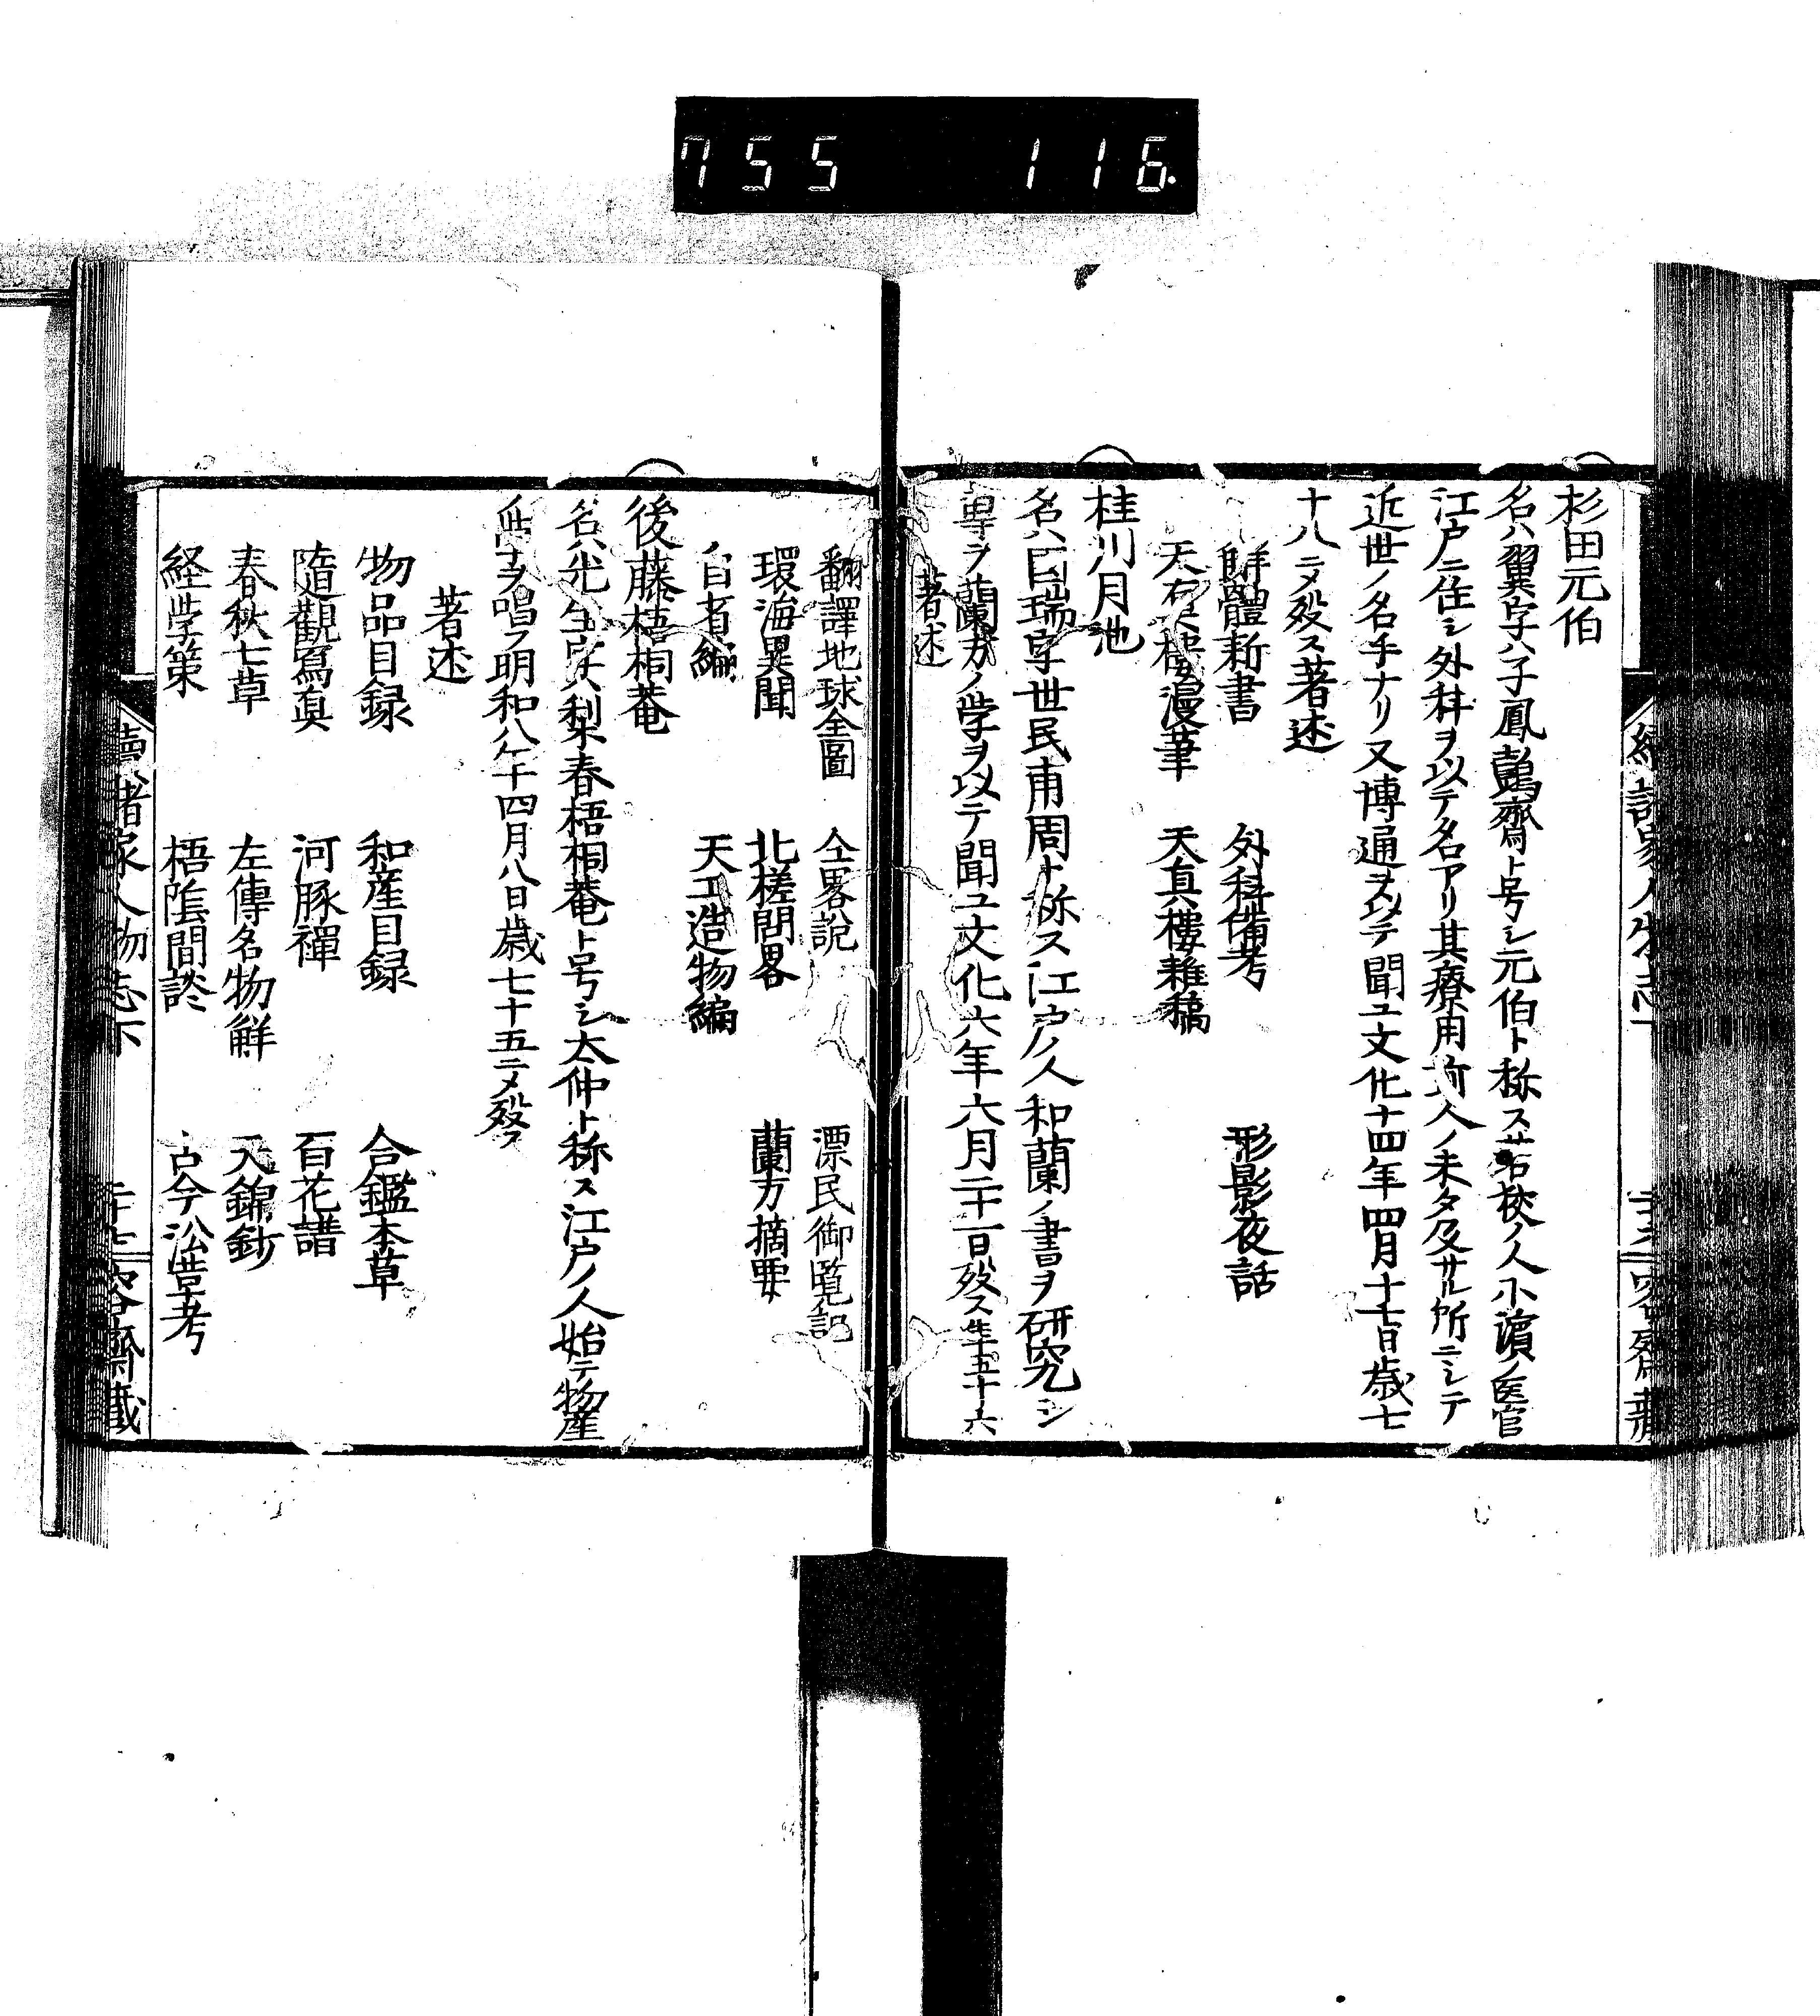 755 116
杉田元伯
名ハ翼字ハ子鳳鷧齋ト号シ元伯ト称ス若狹ノ人小濵ノ医官
江戸ニ住シ外科ヲ以テ名アリ其療用前人ノ未タ及サル所ニシテ
近世ノ名手ナリ又博通ヲ以テ聞ユ文化十四年四月十七日歳七
十八ニメ殁ス著述
解體新書 外科備考 形影夜話
天真樓漫筆 天真樓雜稿
桂川月池
名ハ国瑞字世民甫周ト称ス江戸ノ人和蘭ノ書ヲ研究シ
専ヲ蘭方ノ学ヲ以テ聞ユ文化六年六月二十一日殁ス年五十六
著述
翻譯地球全圖 仝畧説 漂民御覧記
環海異聞 北槎聞畧 蘭方摘要
白者編 天工造物編
後藤梧桐菴
名ハ光生字ハ利春梧桐菴ト号シ太仲ト称ス江戸ノ人始テ物産
学ヲ唱フ明和八年四月八日歳七十五ニメ殁ス
著述
物品目録 和産目録 合鑑本草
隨觀寫眞 河豚禪 百花譜
春秋七草 左傳名物觧 入錦鈔
経学策 梧陰間談 古今沿豊考
續諸家人物志下